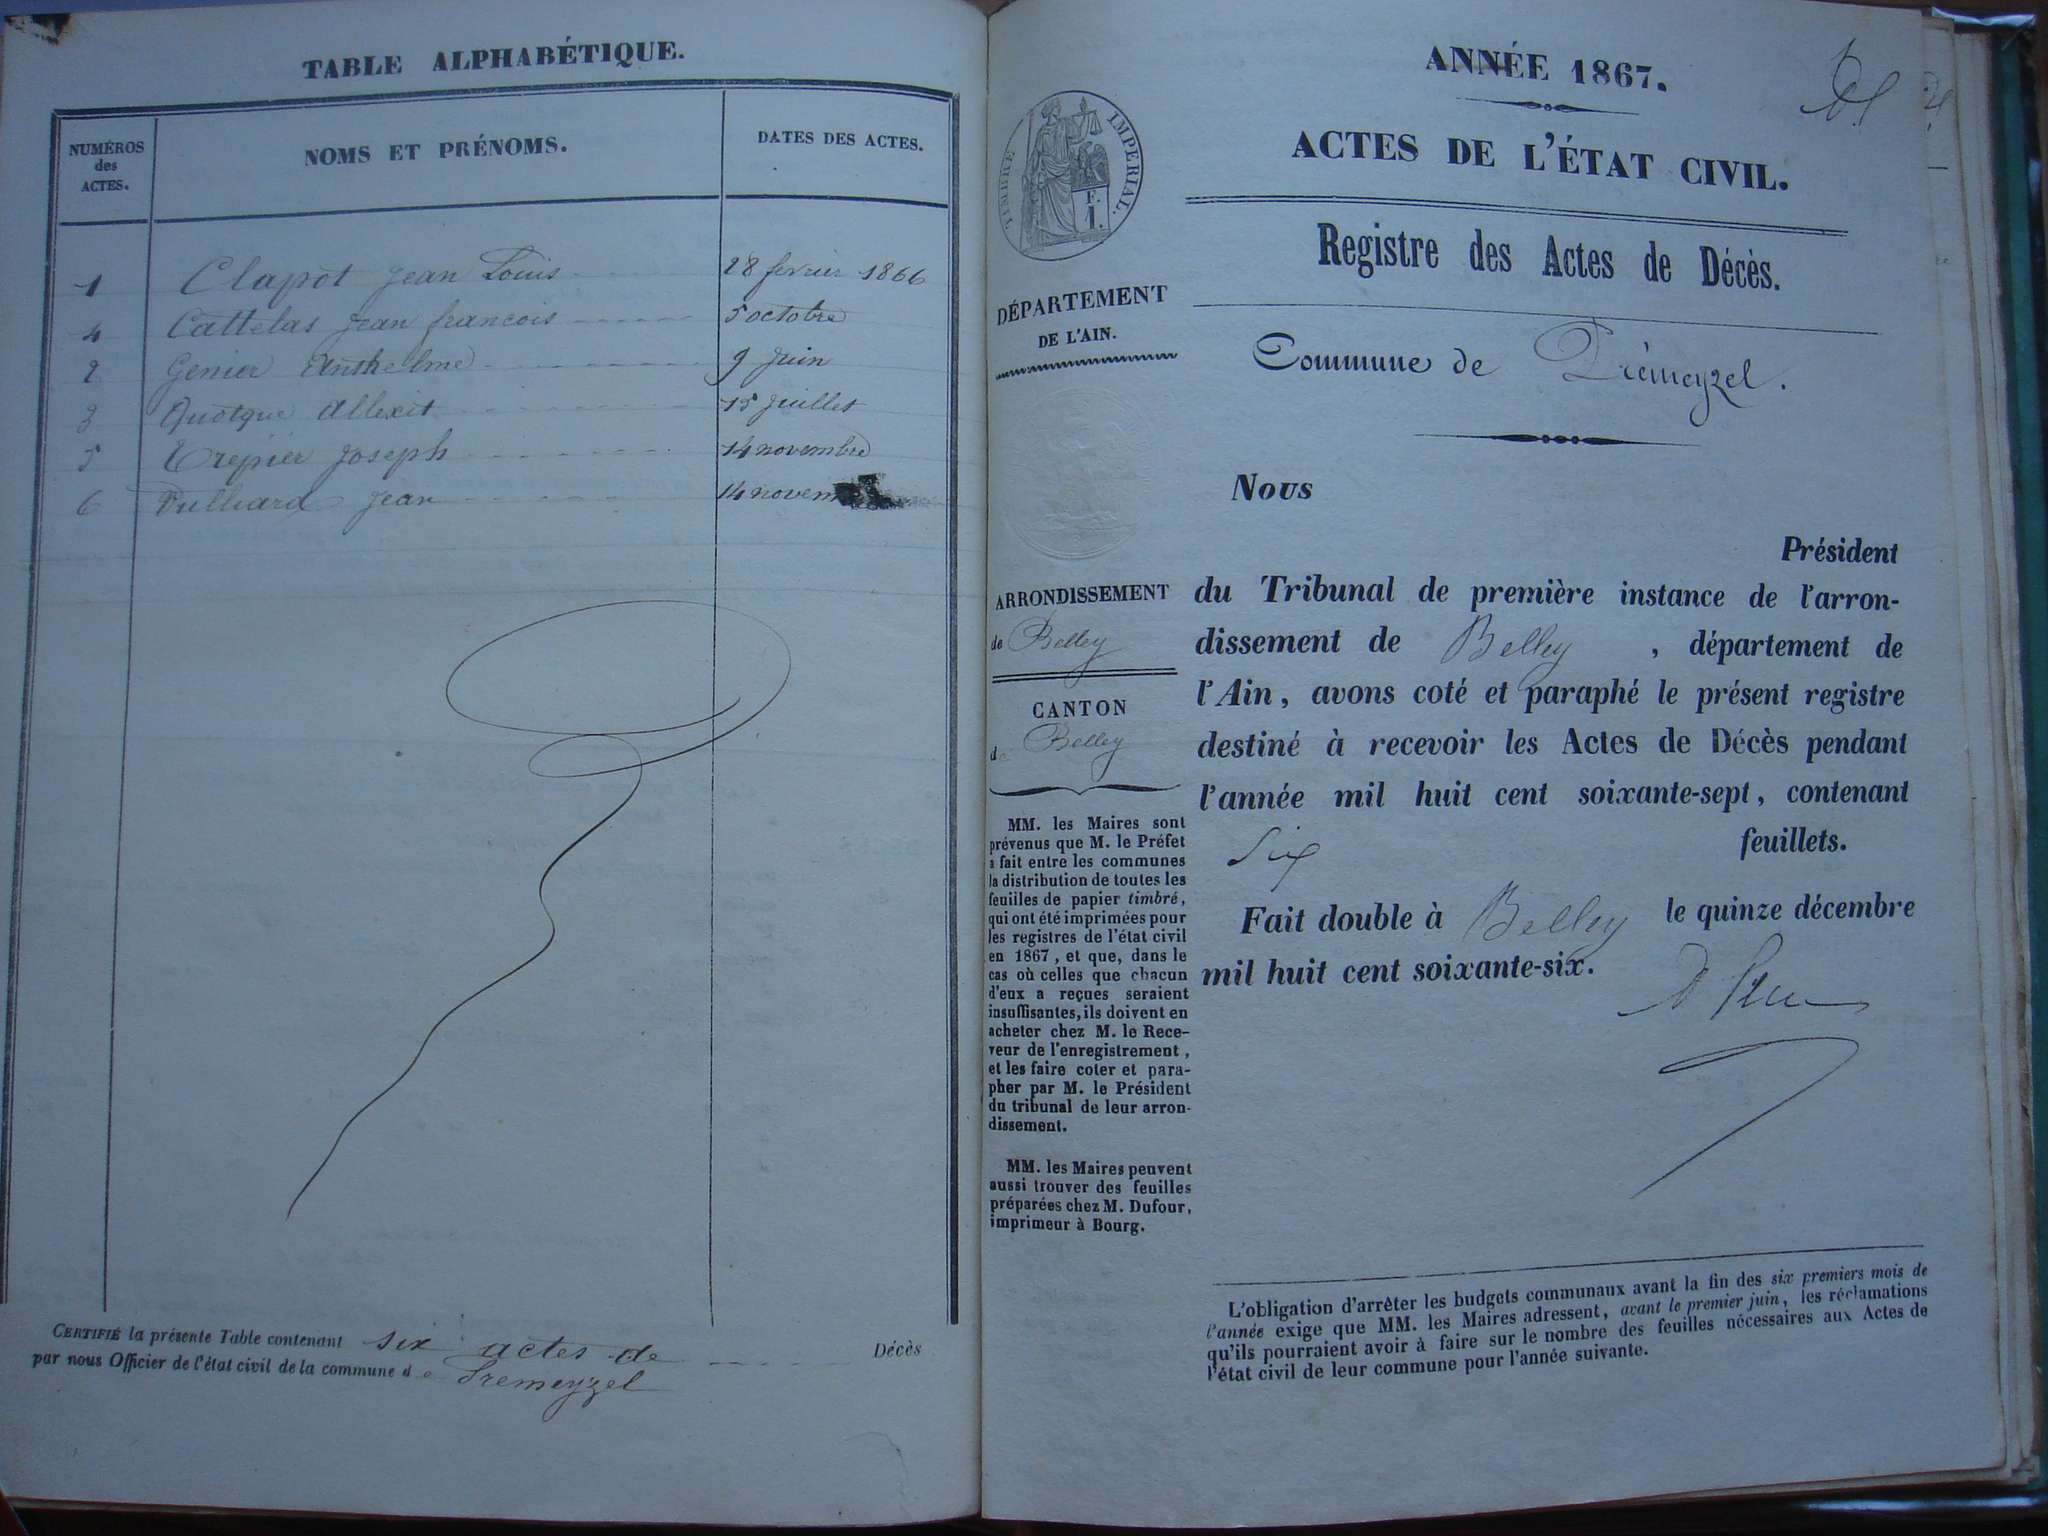 TABLE ALPHABÉTIQUE.
NUMÉROS des ACTES.
NOMS ET PRÉNOMS.
DATES DES ACTES.
1 Clapot Jean Louis 28 fevrier 1866
4 Cattelas Jean francois 5 octobre
2 Genier Anthelme 9 Juin
3 Quotque Allexit 15 Juillet
5 Trépier Joseph 14 novembre
6 Vulliard Jean 14 novem
CERTIFIÉ la présente Table contenant six actes de Décès
par nous Officier de l'état civil de la commune de Premeyzel
ANNÉE 1867.
ACTES DE L'ÉTAT CIVIL.
TIMBRE IMPÉRIAL.
F.
1.
Registre des Actes de Décès.
DÉPARTEMENT
DE L'AIN.
Commune de Prémeyzel.
Nous
Président
du Tribunal de première instance de l'arron-
dissement de Belley, département de
l'Ain, avons coté et paraphé le présent registre
destiné à recevoir les Actes de Décès pendant
l'année mil huit cent soixante-sept, contenant
Six feuillets.
Fait double à Belley le quinze décembre
mil huit cent soixante-six.
ARRONDISSEMENT
de Belley
CANTON
de Belley
MM. les Maires sont
prévenus que M. le Préfet
a fait entre les communes
la distribution de toutes les
feuilles de papier timbré,
qui ont été imprimées pour
les registres de l'état civil
en 1867, et que, dans le
cas où celles que chacun
d'eux a reçues seraient
insuffisantes, ils doivent en
acheter chez M. le Rece-
veur de l'enregistrement,
et les faire coter et para-
pher par M. le Président
du tribunal de leur arron-
dissement.
MM. les Maires peuvent
aussi trouver des feuilles
préparées chez M. Dufour,
imprimeur à Bourg.
L'obligation d'arrêter les budgets communaux avant la fin des six premiers mois de
l'année exige que MM. les Maires adressent, avant le premier juin, les réclamations
qu'ils pourraient avoir à faire sur le nombre des feuilles nécessaires aux Actes de
l'état civil de leur commune pour l'année suivante.